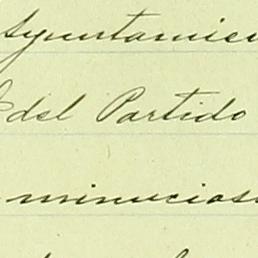 Ayuntamien
del Partido
minucios